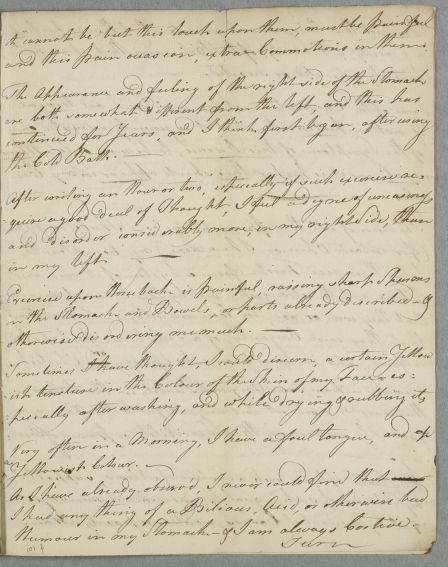 it cannot be but this touch upon them, must be painful
and this pain occasion, extra Commotions in them.
The Appearance and feeling of the right side of the Stomach
are both somewhat different from the left, and this has
continued for Years, and I think first began, after using
the Cold Bath. —
After writing an Hour or two, especially if such exercise re-
quire a good deal of Thought, I feel a degree of uneasiness
and disorder considerably more, in my right Side, than
in my left. —
Exercise upon Horseback is painful, raising sharp Spasms
in the Stomach and Bowels, or parts already described — &
otherwise disordering me much. —
Sometimes I have thought, I could discern, a certain Yellow
ish tincture in the Colour of the Skin of my Face, es:
pecially after washing, and while drying & rubbing it.
Very often in a Morning, I have a foul tongue, and of
a Yellowish Colour. —
As I have already observd, I never could find that
I had any thing of a Bilious, Acid, or otherwise bad
Humour in my Stomach — & I am always Costive.